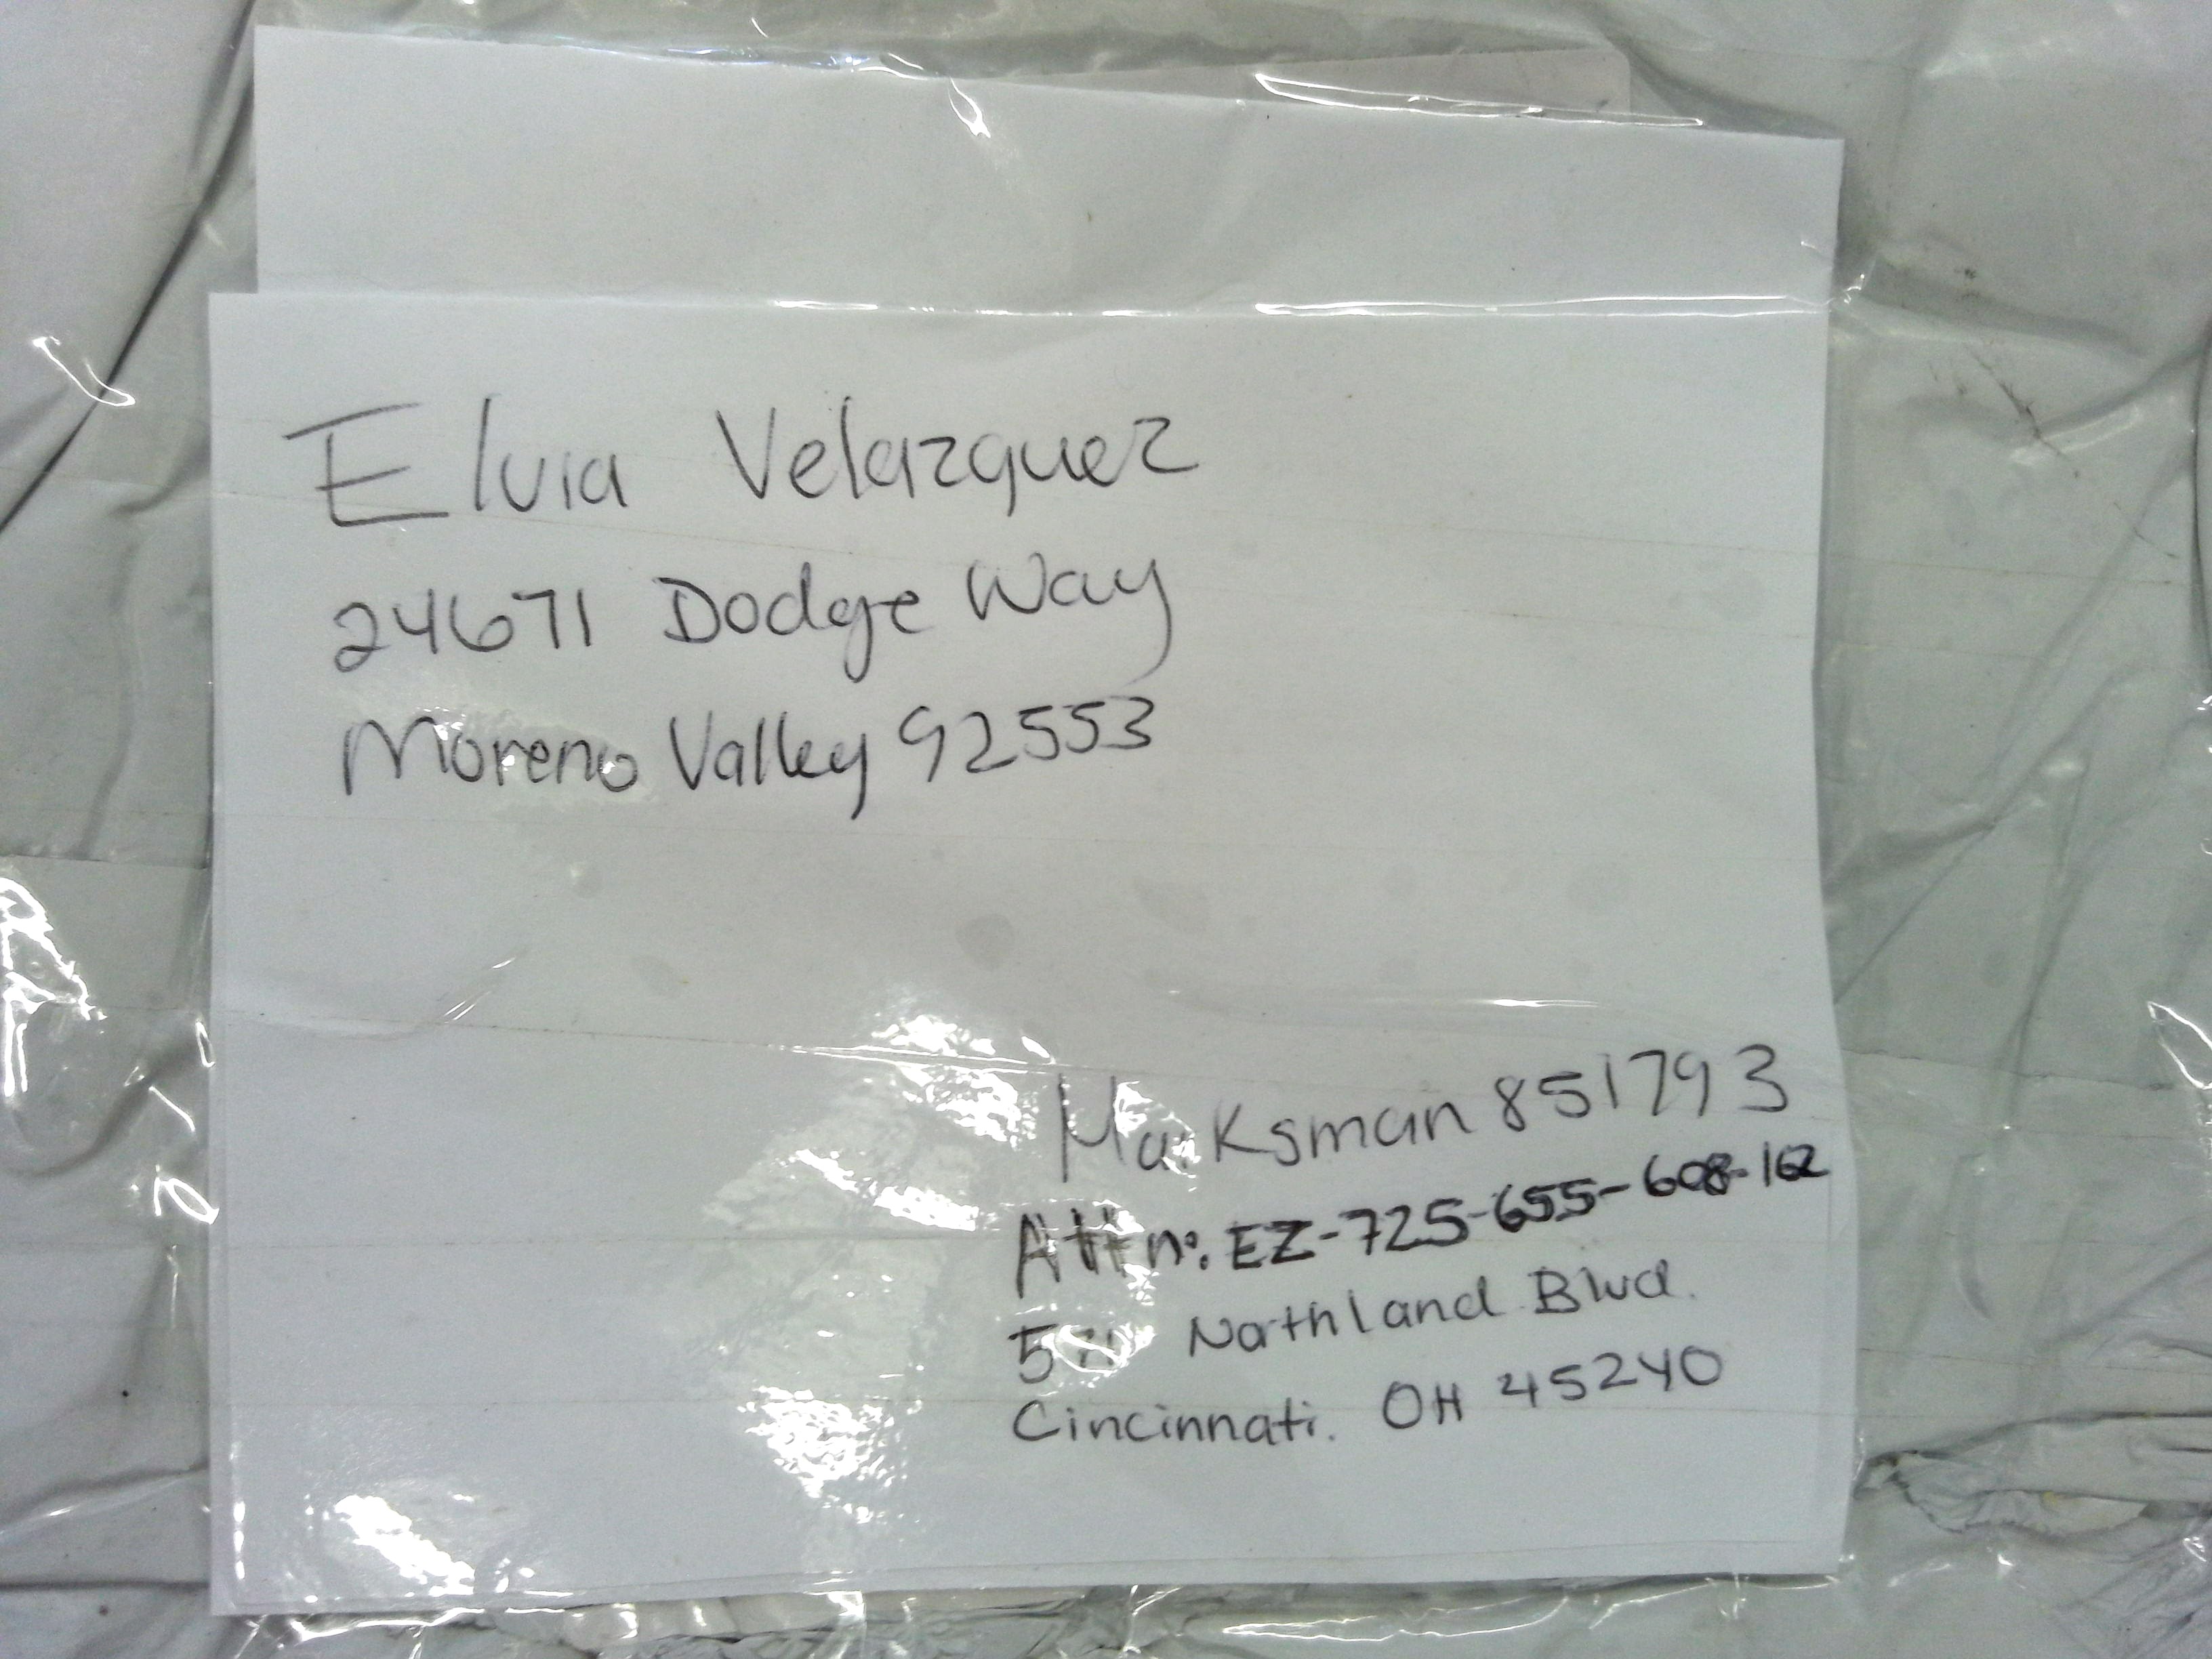 Elvia Velazquez
24671 Dodge Way
Moreno Valley 92553
Marksman 851793
Attn: EZ-725-655-608-162
Northland Blvd.
Cincinnati. OH 45240